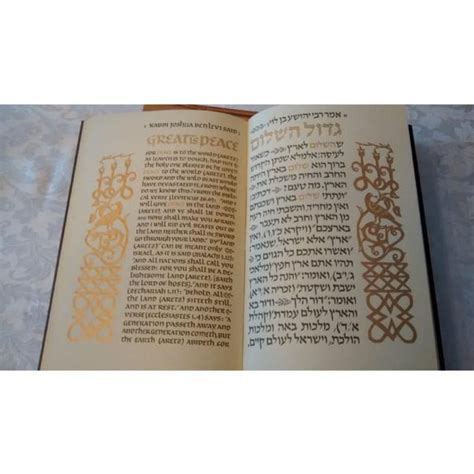 RABBI JOSHUA BEN LEVI SAID:
GREAT IS PEACE
FOR PEACE IS TO THE WORLD (ARETZ)
AS LEAVEN IS TO DOUGH. HAD NOT
THE HOLY ONE BLESSED BE HE
PEACE TO THE WORLD (ARETZ)
SWORD AND THE WILD
HAVE DEVASTATED
A VERSE (LEVITICUS 26:6): "AND I
WILL GIVE PEACE IN THE LAND
AND YE SHALL LIE DOWN,
AND I WILL RID EVIL BEASTS OUT OF
THE LAND, AND NO SWORD SHALL GO
THROUGH YOUR LAND." BY "LAND
(ARETZ)" CAN BE MEANT ONLY
ISRAEL, AS IT IS SAID (MALACHI
"AND ALL NATIONS SHALL CALL YOU
BLESSED: FOR YOU SHALL BE A DE-
LIGHTSOME LAND (ARETZ), SAITH
THE LORD OF HOSTS," AND IT SAYS
(ZECHARIAH 1:11): "BEHOLD, ALL THE
LAND (ARETZ) SITTETH STILL,
AND IS AT REST." AND AN
VERSE (ECCLESIASTES 1:4) SAYS: "A
GENERATION PASSETH AWAY AND
ANOTHER GENERATION COMETH, BUT
THE EARTH (ARETZ) ABIDETH FOR
אמר רבי יהושע בן לוי
גדול השלום
שהשלום לארץ כשאור
לעיסה: אלמלא שנתן הקדוש
ברוך הוא שלום בארץ
החרב והחיה משכלת
הארץ. מה טעם?
"ונתתי שלום בארץ
מן הארץ וחרב לא תעבור
בארצכם" (ויקרא כו, ו). ואין
"ארץ" אלא ישראל שנאמר:
"ואשרו אתכם כל הגוים כי
תהיו אתם ארץ חפץ" (מלאכי
ג, יב), ואומר: "והנה כל הארץ
יושבת ושקטת" (זכריה א, יא).
ואומר: "דור הולך ודור בא
והארץ לעולם עומדת" (קהלת
א, ד), מלכות באה ומלכות
הולכת, וישראל לעולם קיים.